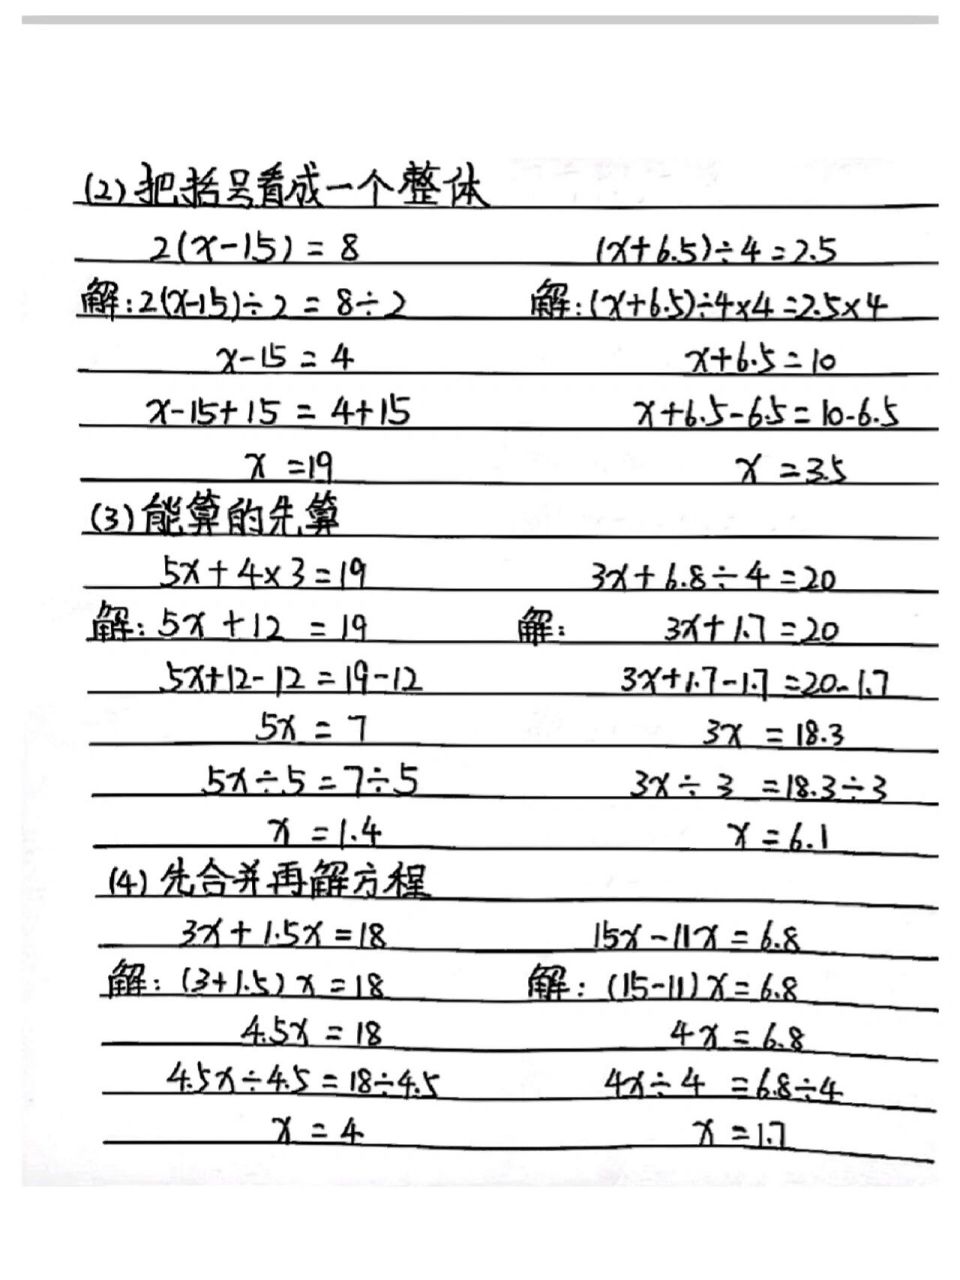 (2) 把括号看成一个整体
2(x-15) = 8 (x+6.5)÷4=2.5
解:2(x-15)÷2 = 8÷2 解:(x+6.5)÷4×4=2.5×4
x-15 = 4 x+6.5=10
x-15+15 = 4+15 x+6.5-6.5=10-6.5
x =19 x =3.5
(3) 能算的先算
5x+4×3=19 3x+6.8÷4=20
解: 5x+12 = 19 解: 3x+1.7=20
5x+12-12 = 19-12 3x+1.7-1.7=20-1.7
5x = 7 3x = 18.3
5x÷5 = 7÷5 3x÷3 =18.3÷3
x =1.4 x=6.1
(4) 先合并再解方程
3x+1.5x=18 15x-11x=6.8
解: (3+1.5)x=18 解: (15-11)x=6.8
4.5x=18 4x=6.8
4.5x÷4.5=18÷4.5 4x÷4 =6.8÷4
x = 4 x =1.7